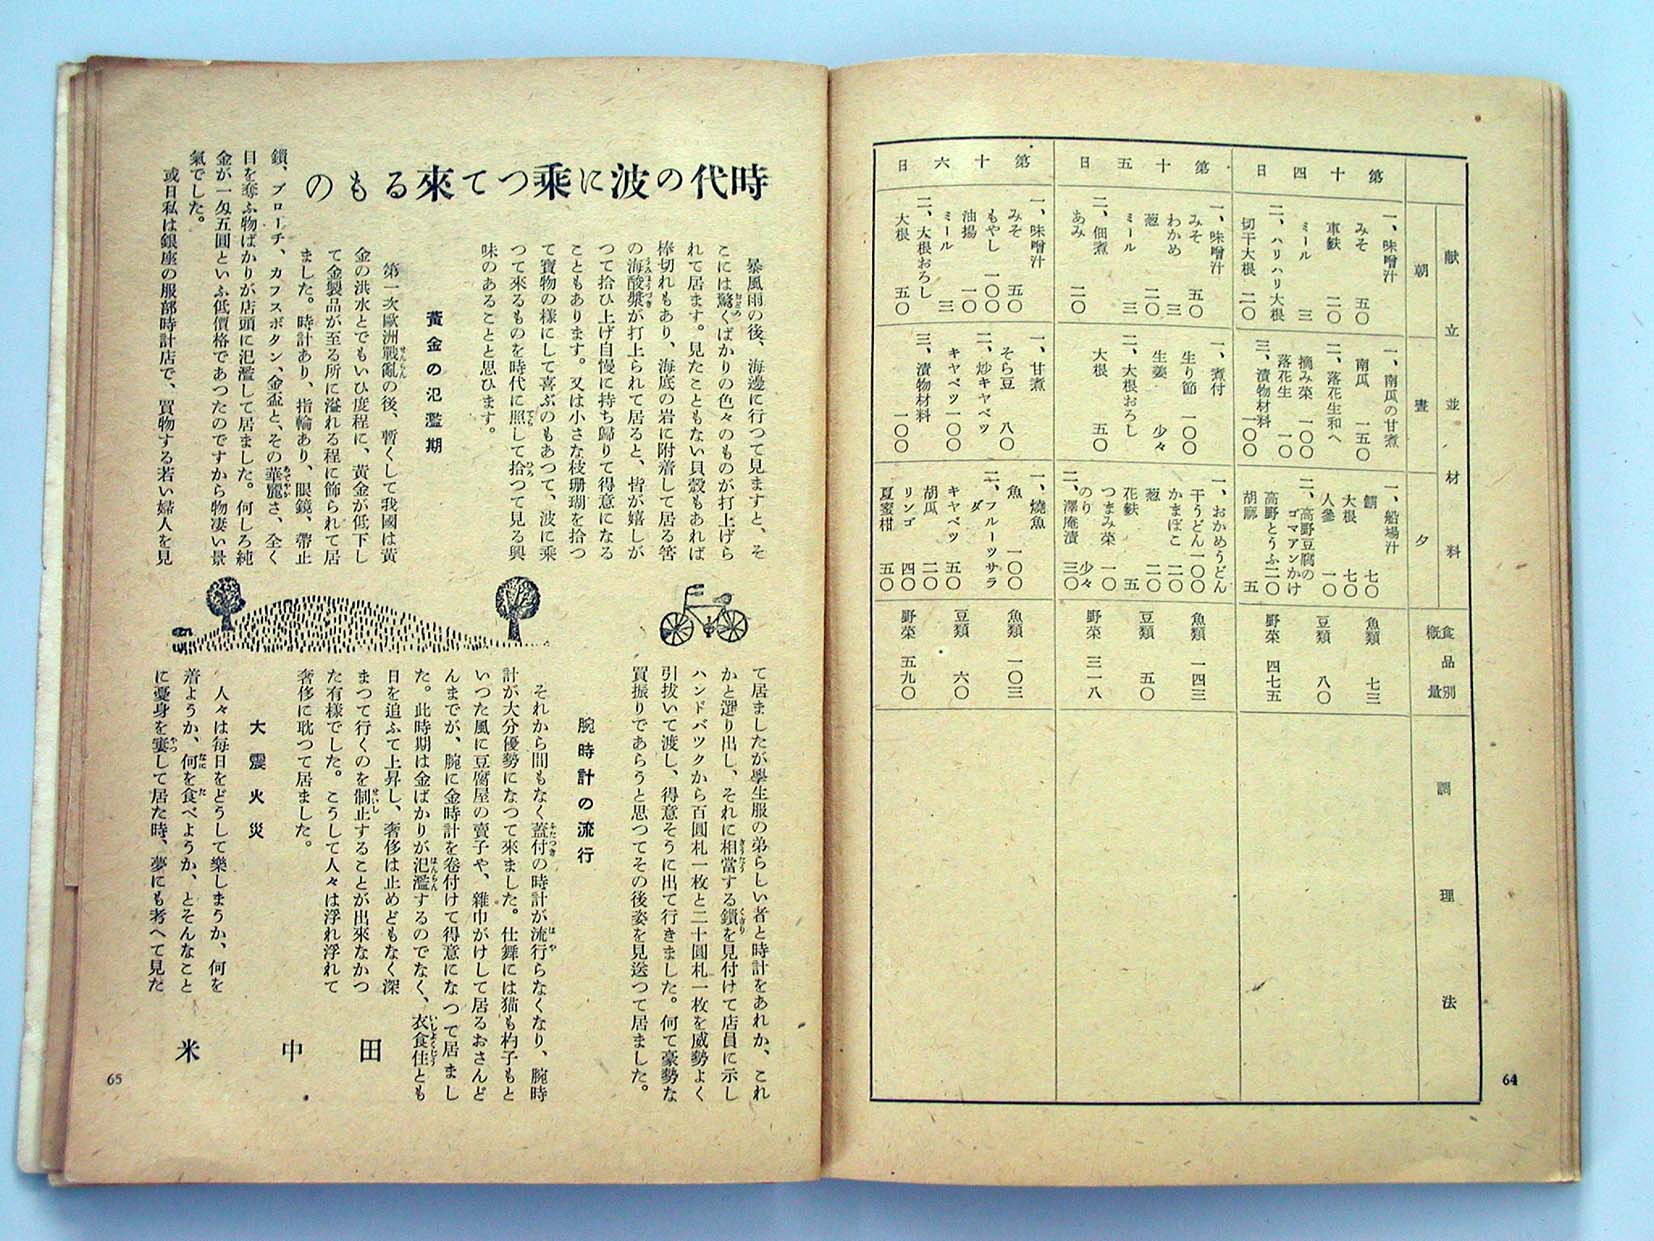 献立並材料
朝
晝
夕
食品別概量
調理法
第十四日
一、味噌汁
みそ 五〇
車麩 二〇
ミール 三
二、ハリハリ大根
切干大根 二〇
一、南瓜の甘煮
南瓜 一五〇
二、落花生和へ
摘み菜 一〇〇
落花生 一〇
三、漬物材料 一〇〇
一、船場汁
鯖 七〇
大根 七〇
人參 一〇
二、高野豆腐のゴマアンかけ
高野とうふ 二〇
胡麻 五
魚類 七三
豆類 八〇
野菜 四七五
第十五日
一、味噌汁
みそ 五〇
わかめ 三
葱 二〇
ミール 三
二、佃煮
あみ 二〇
一、煮付
生り節 一〇〇
生姜 少々
二、大根おろし
大根 五〇
一、おかめうどん
干うどん 一〇〇
かまぼこ 二〇
葱 二〇
花麩 五
つまみ菜 一〇
のり 少々
二、澤庵漬 三〇
魚類 一四三
豆類 五〇
野菜 三一八
第十六日
一、味噌汁
みそ 五〇
もやし 一〇〇
油揚 一〇
ミール 三
二、大根おろし
大根 五〇
一、甘煮
そら豆 八〇
二、炒キヤベツ
キヤベツ 一〇〇
三、漬物材料 一〇〇
一、燒魚
魚 一〇〇
二、フルーツサラダ
キヤベツ 五〇
胡瓜 二〇
リンゴ 四〇
夏蜜柑 五〇
魚類 一〇三
豆類 六〇
野菜 五九〇
64
時代の波に乘つて來るもの
暴風雨の後、海邊に行つて見ますと、そ
こには驚くばかりの色々のものが打上げら
れて居ます。見たこともない貝殼もあれば
棒切れもあり、海底の岩に附着して居る筈
の海酸漿が打上られて居ると、皆が嬉しが
つて拾ひ上げ自慢に持ち歸りて得意になる
こともあります。又は小さな枝珊瑚を拾つ
て寶物の樣にして喜ぶのもあつて、波に乘
つて來るものを時代に照して拾つて見る興
味のあることと思ひます。
黃金の氾濫期
第一次歐洲戰亂の後、暫くして我國は黃
金の洪水とでもいひ度程に、黃金が低下し
て金製品が至る所に溢れる程に飾られて居
ました。時計あり、指輪あり、眼鏡、帶止
鎖、ブローチ、カフスボタン、金盃と、その華麗さ、全く
目を奪ふ物ばかりが店頭に氾濫して居ました。何しろ純
金が一匁五圓といふ低價格であつたのですから物凄い景
氣でした。
或日私は銀座の服部時計店で、買物する若い婦人を見
て居ましたが學生服の弟らしい者と時計をあれか、これ
かと選り出し、それに相當する鎖を見付けて店員に示し
ハンドバツクから百圓札一枚と二十圓札一枚を威勢よく
引拔いて渡し、得意そうに出て行きました。何て豪勢な
買振りであらうと思つてその後姿を見送つて居ました。
腕時計の流行
それから間もなく蓋付の時計が流行らなくなり、腕時
計が大分優勢になつて來ました。仕舞には猫も杓子もと
いつた風に豆腐屋の賣子や、雜巾がけして居るおさんど
んまでが、腕に金時計を卷付けて得意になつて居まし
た。此時期は金ばかりが氾濫するのでなく、衣食住とも
日を追ふて上昇し、奢侈は止めどもなく深
まつて行くのを制止することが出來なかつ
た有樣でした。こうして人々は浮れ浮れて
奢侈に耽つて居ました。
大震火災
人々は每日をどうして樂しまうか、何を
着ようか、何を食べようか、とそんなこと
に憂身を窶して居た時、夢にも考へて見た
田中米
65